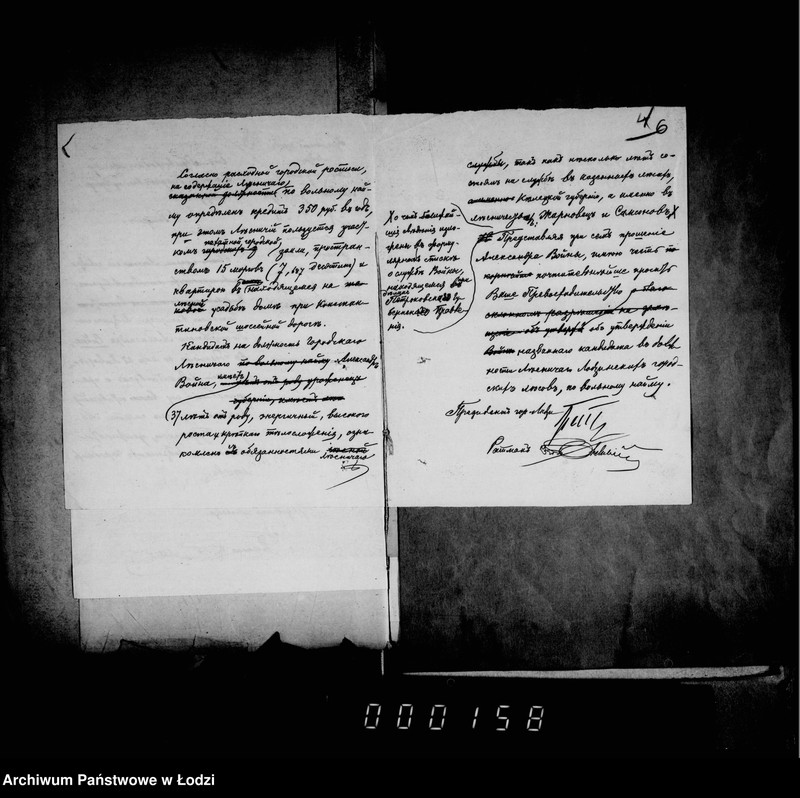 Согласно расходной городской росписи,
на содержаніе Лѣсничаго
по вольному най-
му опредѣленъ кредитъ 350 руб. въ годъ,
при этомъ Лѣсничій пользуется участ-
комъ городской земли, простран-
ствомъ 15 морговъ (7,697 десятин) и
квартирою въ находящемся на
усадьбѣ домѣ при Констан-
тиновской шоссейной дорогѣ.
Кандидатъ на должность Городскаго
Лѣсничаго по вольному найму Александръ
Война, имѣетъ
37 лѣтъ отъ роду, энергичный, высокаго
роста и крѣпкаго тѣлосложенія, озна-
комленъ съ обязанностями
Лѣсничаго
4/6
службы, такъ какъ нѣсколько лѣтъ со-
стоялъ на службѣ въ казенныхъ лѣсахъ,
Кѣлецкой губерніи, а именно въ
лѣсничествѣ: Жарновецъ и
X о чемъ
свѣдѣнія
въ форму-
лярномъ спискѣ
о службѣ Войны,
находящемся при
Петроковскаго Гу-
бернскаго Правле-
нія.
Представляя при семъ прошеніе
Александра Войны, имѣю честь
почтительнѣйше просить
Ваше Превосходительство
объ утвержденіи
названнаго кандидата въ долж-
ности Лѣсничаго Лодзинскихъ город-
скихъ лѣсовъ, по вольному найму.
Президентъ гор. Лодзи
Ратманъ
000158
Archiwum Państwowe w Łodzi